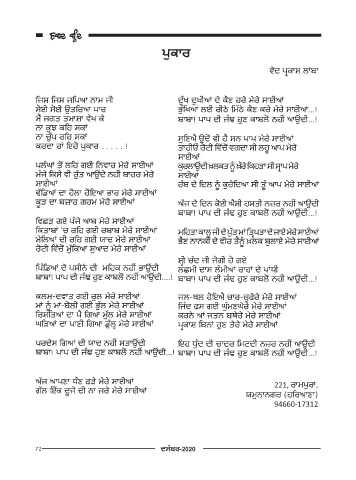 ਪੁਕਾਰ
ਵੇਦ ਪ੍ਰਕਾਸ਼ ਲਾਂਬਾ
ਜਿਸ ਜਿਸ ਜਪਿਆ ਨਾਮ ਜੀ
ਸੋਈ ਸੋਈ ਉਤਰਿਆ ਪਾਰ
ਮੈਂ ਜਗਤ ਤਮਾਸ਼ਾ ਵੇਖ ਕੇ
ਨਾ ਕੁਝ ਕਹਿ ਸਕਾਂ
ਨਾ ਚੁੱਪ ਰਹਿ ਸਕਾਂ
ਕਰਦਾ ਹਾਂ ਇਹੋ ਪੁਕਾਰ . . . . . !
ਪਲੰਘਾਂ ਤੋਂ ਲਹਿ ਗਈ ਨਿਵਾਰ ਮੇਰੇ ਸਾਈਆਂ
ਮੰਜੇ ਕਿਸੇ ਵੀ ਰੁੱਤ ਆਉਂਦੇ ਨਹੀਂ ਬਾਹਰ ਮੇਰੇ
ਸਾਈਆਂ
ਵੰਡਿਆਂ ਦਾ ਹੋਲਾ ਹੋਇਆ ਭਾਰ ਮੇਰੇ ਸਾਈਆਂ
ਕੂੜ ਦਾ ਬਜ਼ਾਰ ਗਰਮ ਮੇਰੇ ਸਾਈਆਂ
ਵਿਛੜ ਗਏ ਪੰਜੇ ਆਬ ਮੇਰੇ ਸਾਈਆਂ
ਕਿਤਾਬਾਂ 'ਚ ਰਹਿ ਗਈ ਰਬਾਬ ਮੇਰੇ ਸਾਈਆਂ
ਮੇਲਿਆਂ ਦੀ ਰਹਿ ਗਈ ਯਾਦ ਮੇਰੇ ਸਾਈਆਂ
ਰੋਟੀ ਵਿੱਚੋਂ ਮੁੱਕਿਆ ਸੁਆਦ ਮੇਰੇ ਸਾਈਆਂ
ਪਿੰਡਿਆਂ ਦੇ ਪਸੀਨੇ ਦੀ ਮਹਿਕ ਨਹੀਂ ਭਾਉਂਦੀ
ਬਾਬਾ! ਪਾਪ ਦੀ ਜੰਞ ਹੁਣ ਕਾਬਲੋਂ ਨਹੀਂ ਆਉਂਦੀ....!
ਕਲਮ-ਦਵਾਤ ਗਈ ਰੁਲ ਮੇਰੇ ਸਾਈਆਂ
ਮਾਂ ਨੂੰ ਮਾਂ-ਬੋਲੀ ਗਈ ਭੁੱਲ ਮੇਰੇ ਸਾਈਆਂ
ਰਿਸ਼ਤਿਆਂ ਦਾ ਪੈ ਗਿਆ ਮੁੱਲ ਮੇਰੇ ਸਾਈਆਂ
ਘੜਿਆਂ ਦਾ ਪਾਣੀ ਗਿਆ ਡੁੱਲ੍ਹ ਮੇਰੇ ਸਾਈਆਂ
ਪਰਦੇਸ ਗਿਆਂ ਦੀ ਯਾਦ ਨਹੀਂ ਸਤਾਉਂਦੀ
ਬਾਬਾ! ਪਾਪ ਦੀ ਜੰਞ ਹੁਣ ਕਾਬਲੋਂ ਨਹੀਂ ਆਉਂਦੀ...!
ਅੱਜ ਆਪਣਾ ਧੌਣ ਫੜੇ ਮੇਰੇ ਸਾਈਆਂ
ਗੱਲ ਇੱਕ ਦੂਜੇ ਦੀ ਨਾ ਜਰੇ ਮੇਰੇ ਸਾਈਆਂ
ਦੁੱਖ ਦੁਖੀਆਂ ਦੇ ਕੌਣ ਹਰੇ ਮੇਰੇ ਸਾਈਆਂ
ਭੁੱਖਿਆਂ ਲਈ ਰੀਠੇ ਮਿੱਠੇ ਕੌਣ ਕਰੇ ਮੇਰੇ ਸਾਈਆਂ...!
ਬਾਬਾ! ਪਾਪ ਦੀ ਜੰਞ ਹੁਣ ਕਾਬਲੋਂ ਨਹੀਂ ਆਉਂਦੀ...!
ਸੁਣਿਐ ਉਦੋਂ ਵੀ ਹੈ ਸਨ ਪਾਪ ਮੇਰੇ ਸਾਈਆਂ
ਤਾਹੀਓਂ ਰੋਟੀ ਵਿੱਚੋਂ ਵਗਦਾ ਸੀ ਲਹੂ ਆਪ ਮੇਰੇ
ਸਾਈਆਂ
ਸਾਈਆਂ
ਹੱਥ ਦੇ ਦਿਲ ਨੂੰ ਕੁਰੇਦਿਆ ਸੀ ਤੂੰ ਆਪ ਮੇਰੇ ਸਾਈਆਂ
ਅੱਜ ਦੇ ਦਿਨ ਕੋਈ ਐਸੀ ਹਸਤੀ ਨਜ਼ਰ ਨਹੀਂ ਆਉਂਦੀ
ਬਾਬਾ! ਪਾਪ ਦੀ ਜੰਞ ਹੁਣ ਕਾਬਲੋਂ ਨਹੀਂ ਆਉਂਦੀ...!
ਮਹਿਤਾ ਕਾਲੂ ਜੀ ਦੇ ਪੁੱਤ ਮਾਂ ਤ੍ਰਿਪਤਾ ਦੇ ਜਾਏ ਮੇਰੇ ਸਾਈਆਂ
ਭੈਣ ਨਾਨਕੀ ਦੇ ਵੀਰ ਤੈਨੂੰ ਖ਼ਲਕ ਬੁਲਾਏ ਮੇਰੇ ਸਾਈਆਂ
ਸ੍ਰੀ ਚੰਦ ਜੀ ਜੋਗੀ ਹੋ ਗਏ
ਲੱਛਮੀ ਦਾਸ ਲੰਮੀਆਂ ਰਾਹਾਂ ਦੇ ਪਾਂਧੀ
ਬਾਬਾ! ਪਾਪ ਦੀ ਜੰਞ ਹੁਣ ਕਾਬਲੋਂ ਨਹੀਂ ਆਉਂਦੀ...!
ਜਲ-ਥਲ ਹੋਇਐ ਚਾਰ-ਚੁਫੇਰੇ ਮੇਰੇ ਸਾਈਆਂ
ਜਿੰਦ ਫਸ ਗਈ ਘੁੰਮਣਘੇਰੇ ਮੇਰੇ ਸਾਈਆਂ
ਕਰਨੇ ਆਂ ਜਤਨ ਬਥੇਰੇ ਮੇਰੇ ਸਾਈਆਂ
ਪ੍ਰਕਾਸ਼ ਬਿਨਾਂ ਹੁਣ ਤੇਰੇ ਮੇਰੇ ਸਾਈਆਂ
ਇਹ ਧੁੰਦ ਦੀ ਚਾਦਰ ਮਿਟਦੀ ਨਜ਼ਰ ਨਹੀਂ ਆਉਂਦੀ
ਬਾਬਾ! ਪਾਪ ਦੀ ਜੰਞ ਹੁਣ ਕਾਬਲੋਂ ਨਹੀਂ ਆਉਂਦੀ...!
221, ਰਾਮਪੁਰਾ,
ਯਮੁਨਾਨਗਰ (ਹਰਿਆਣਾ)
94660-17312
ਦਸੰਬਰ-2020